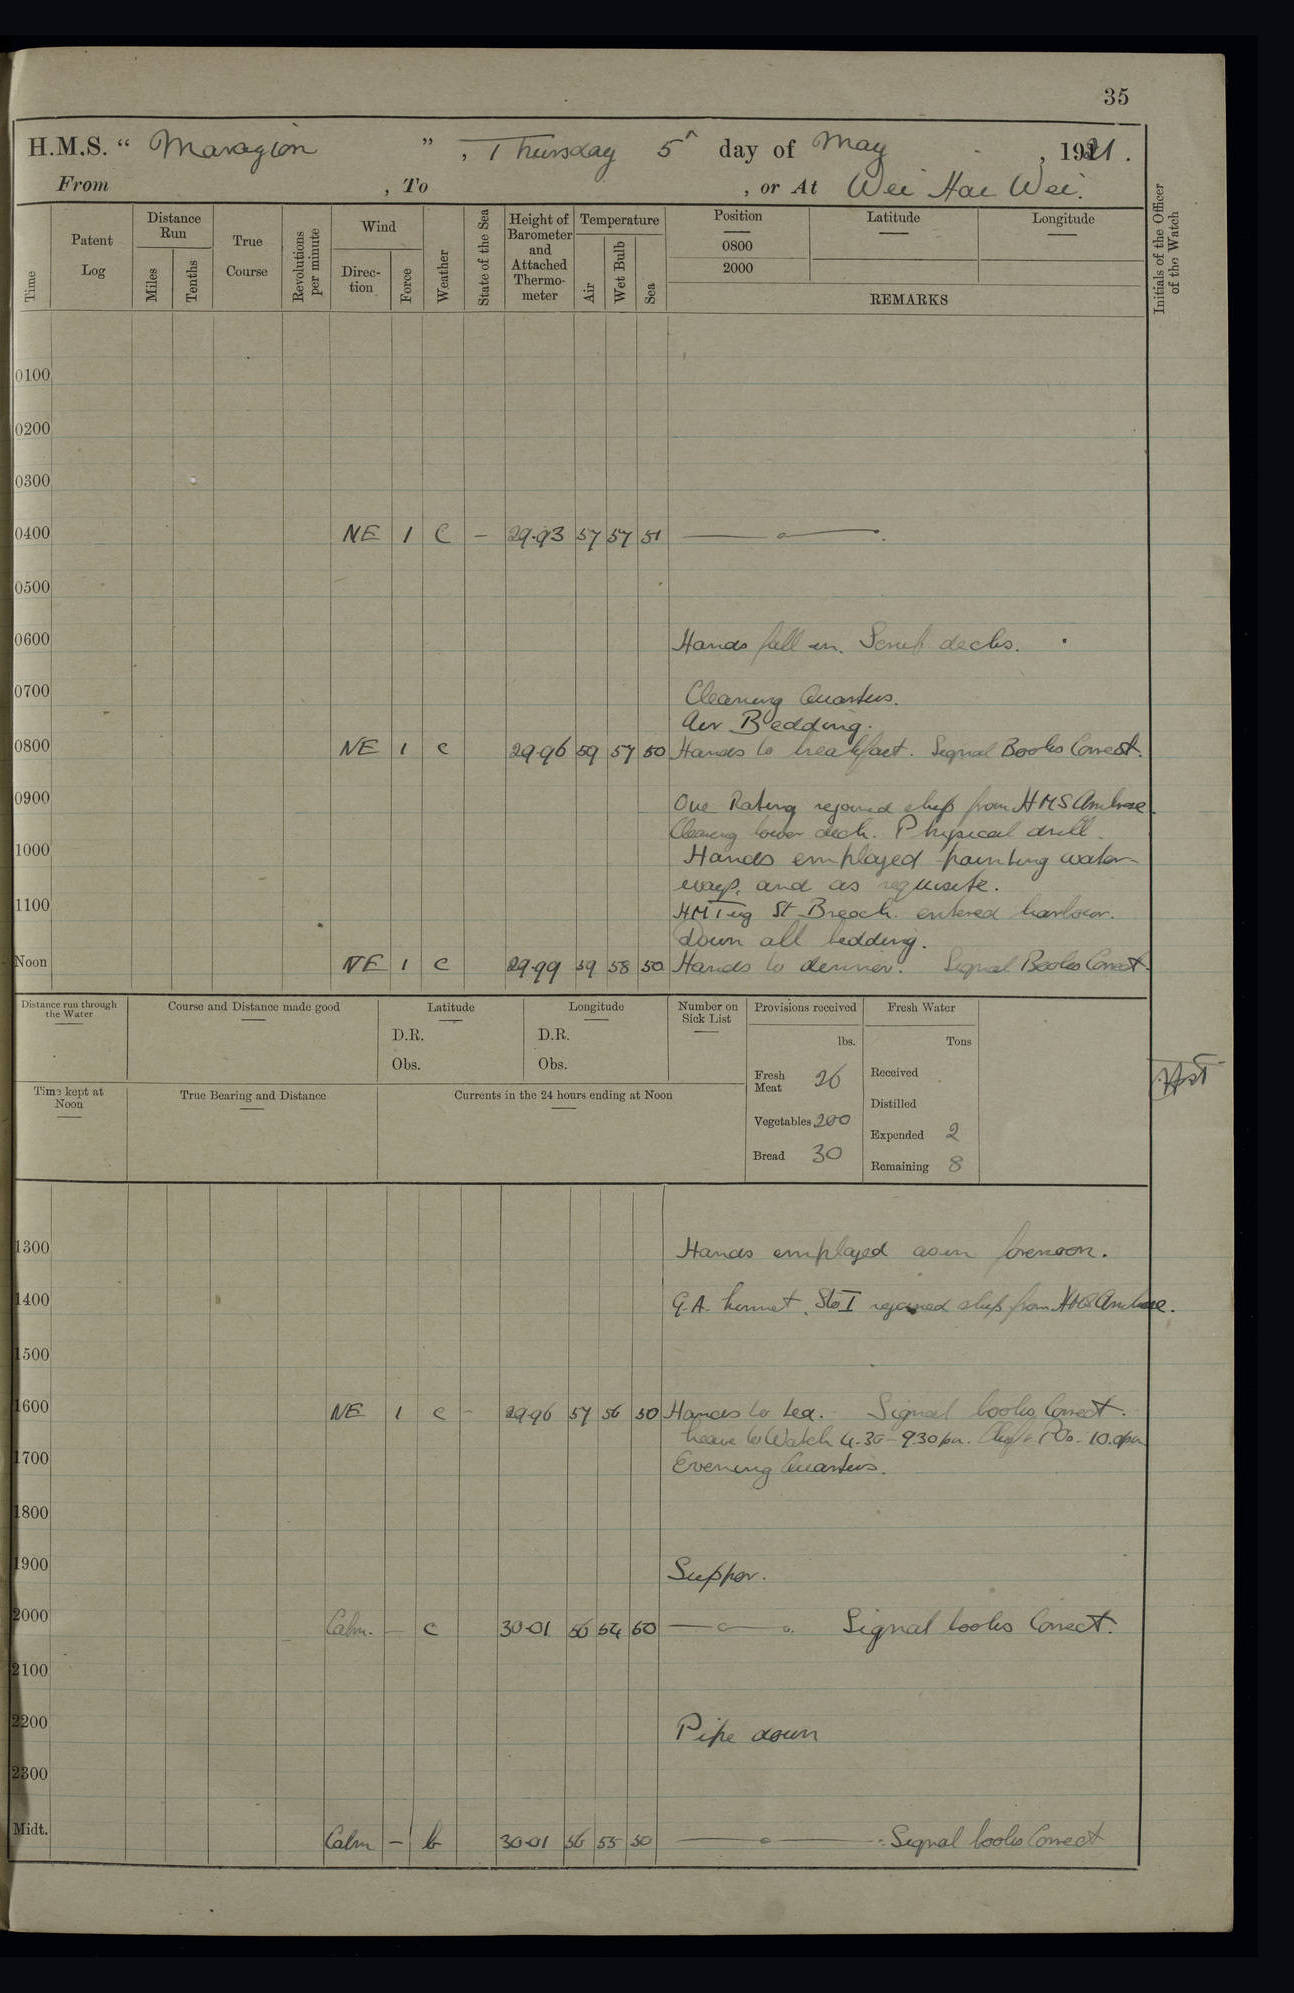 35
H.M.S. “ Marazion ” , Thursday 5th day of May , 1921 .
From , To , or At Wei Hai Wei.
Time
Patent Log
Distance Run
Miles
Tenths
True Course
Revolutions per minute
Wind
Direc-tion
Force
Weather
State of the Sea
Height of Barometer and Attached Thermo-meter
Temperature
Air
Wet Bulb
Sea
Position
0800
2000
Latitude
Longitude
REMARKS
Initials of the Officer of the Watch
0100
0200
0300
0400 NE 1 C - 29.93 57 57 51
0500
0600 Hands fall in. Scrub decks.
0700 Cleaning Quarters.
Air Bedding.
0800 NE 1 c 29.96 59 57 50 Hands to breakfast. Signal Books Correct.
0900 One Rating rejoined ship from HMS Ambrose.
Cleaning lower deck. Physical drill.
1000 Hands employed painting water
ways. and as requisite.
1100 HM Tug St Breock. entered harbour.
Down all bedding.
Noon NE 1 c 29.99 59 58 50 Hands to dinner. Signal Books Correct.
Distance run through the Water
Course and Distance made good
Latitude
D.R.
Obs.
Longitude
D.R.
Obs.
Number on Sick List
Provisions received
lbs.
Fresh Meat 26
Vegetables 200
Bread 30
Fresh Water
Tons
Received
Distilled
Expended 2
Remaining 8
Time kept at Noon
True Bearing and Distance
Currents in the 24 hours ending at Noon
1300 Hands employed as in forenoon.
1400 G.A. Sto I rejoined ship from HMS Ambrose.
1500
1600 NE 1 c - 29.96 57 56 50 Hands to tea. Signal books Correct.
Leave to Watch 4.30 - 9.30 pm. Chf & POs. 10.0 pm
1700 Evening Quarters.
1800
1900 Supper.
2000 Calm. - c 30.01 56 54 50 Signal books Correct.
2100
2200 Pipe down
2300
Midt. Calm - b 30.01 56 55 50 Signal books Correct